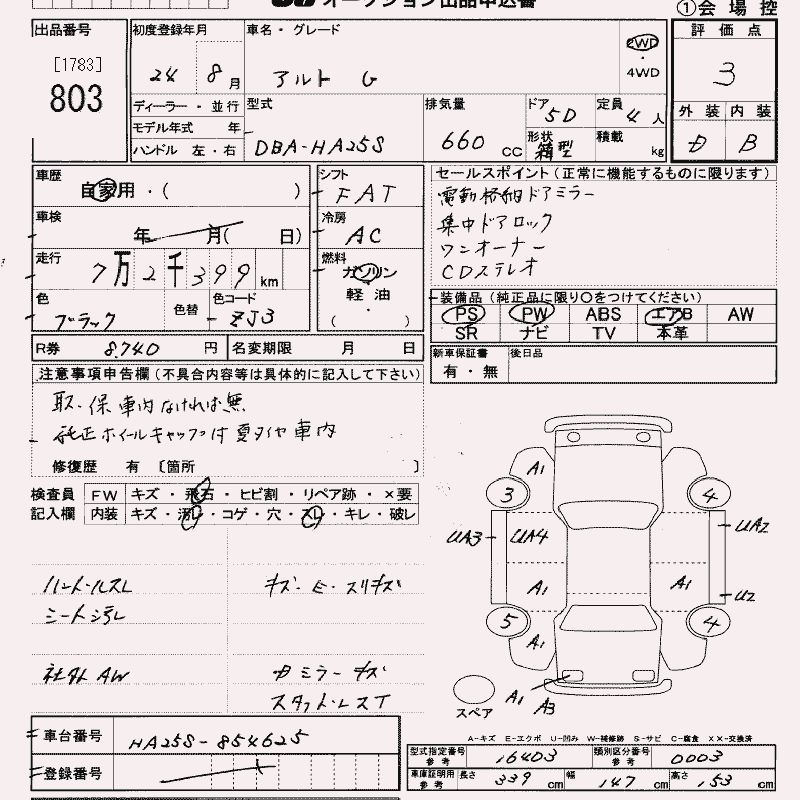 オークション出品申込書
①会場控
出品番号
[1783]
803
初度登録年月
24 8月
車名・グレード
アルト G
2WD
・
4WD
評価点
3
外装 内装
D B
ディーラー・並行
モデル年式 年
ハンドル 左・右
型式
DBA-HA25S
排気量
660 CC
ドア
5D
定員
4人
形状
箱型
積載
kg
車歴
自家用・( )
シフト
FAT
セールスポイント(正常に機能するものに限ります)
電動格納ドアミラー
集中ドアロック
ワンオーナー
CDステレオ
車検
年 月( 日)
冷房
AC
走行
7万2千399km
燃料
ガソリン
軽油
( ・ )
色
ブラック
色替
色コード
ZJ3
装備品(純正品に限り○をつけてください)
PS PW ABS エアB AW
SR ナビ TV 本革
R券 8.740 円
名変期限 月 日
新車保証書
有・無
後日品
注意事項申告欄(不具合内容等は具体的に記入して下さい)
取・保車内なければ無
純正ホイールキャップ付夏タイヤ車内
修復歴 有 〔箇所 〕
検査員
記入欄
FW キズ・飛石・ヒビ割・リペア跡・×要
内装 キズ・汚レ・コゲ・穴・スレ・キレ・破レ
ハンドルスレ
シート汚レ
社外AW
キズ・E・スリキズ
ミラーキズ
スタッドレスT
A1
3
4
UA3
UA4
UA2
A1
A1
U2
5
4
A1
スペア
A1
A3
A-キズ E-エクボ U-凹み W-補修跡 S-サビ C-腐食 XX-交換済
車台番号
HA25S-854625
登録番号
型式指定番号
参考
16403
類別区分番号
参考
0003
車庫証明用
参考
長さ 339 cm
幅 147 cm
高さ 153 cm